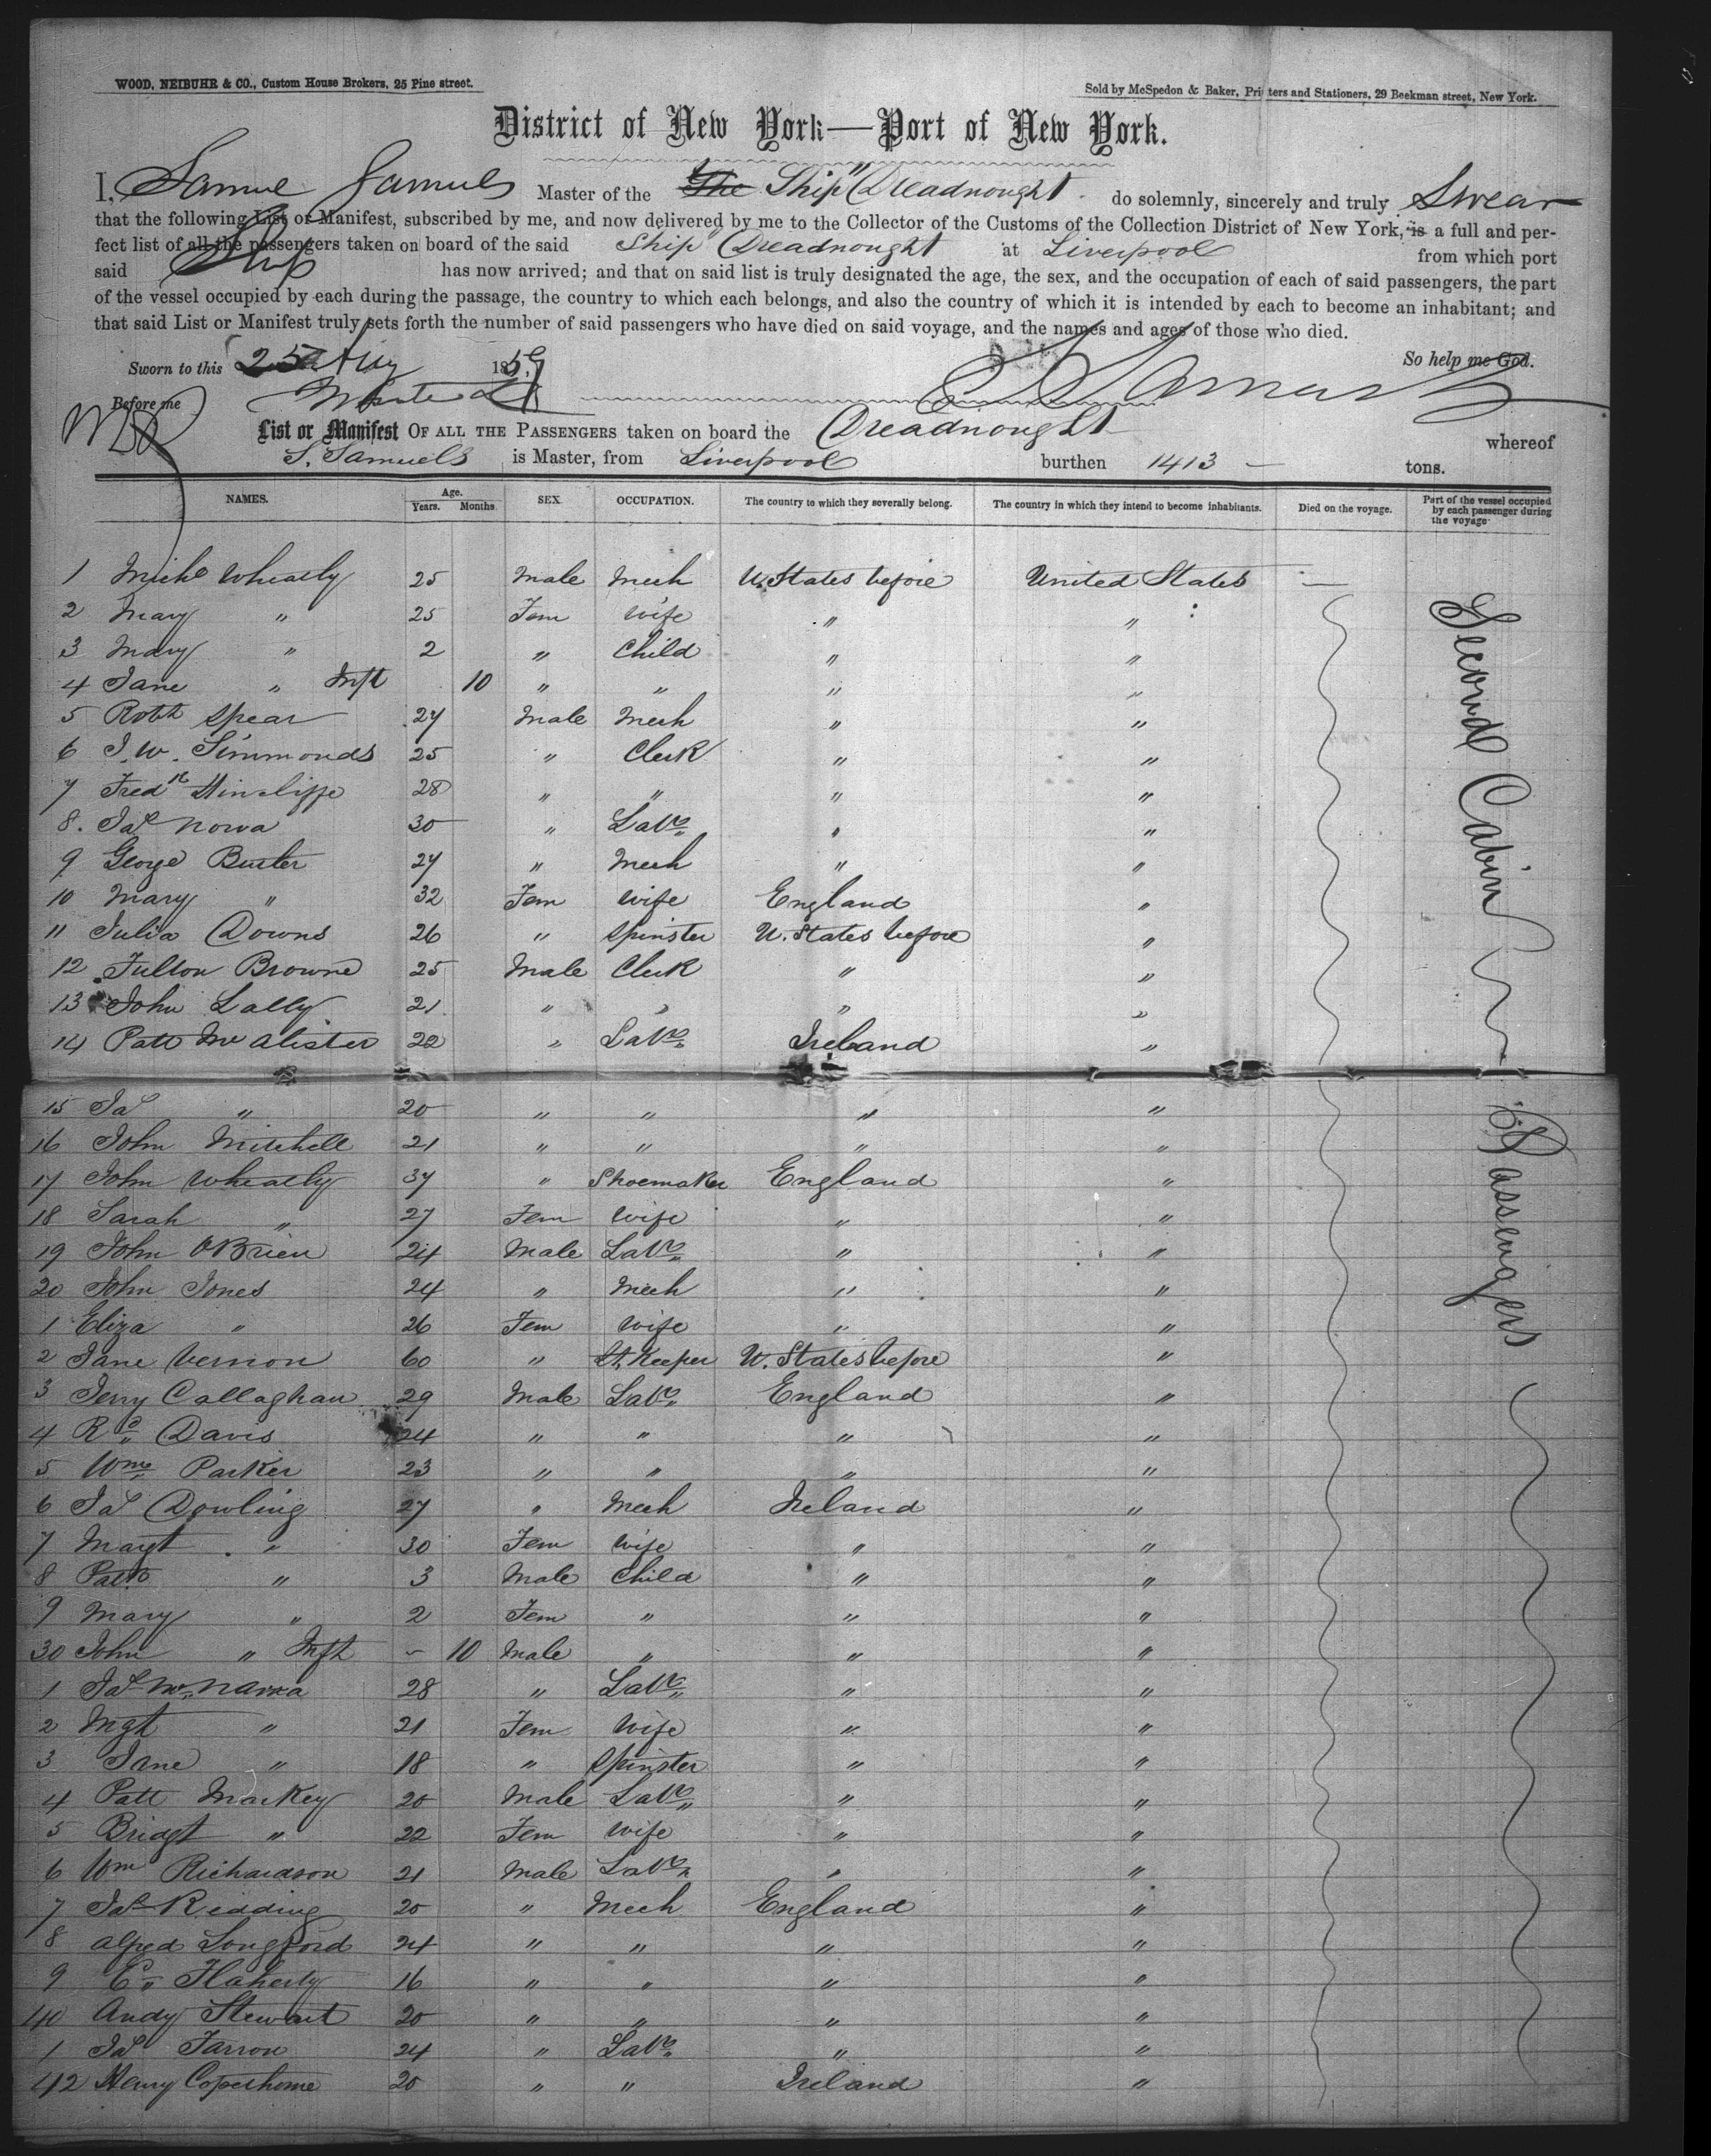 WOOD, NEIBUHR & CO., Custom House Brokers, 25 Pine street.
Sold by McSpedon & Baker, Printers and Stationers, 29 Beekman street, New York.
District of New York—Port of New York.
I, Samuel Samuels Master of the The Ship "Dreadnought do solemnly, sincerely and truly Swear
that the following List or Manifest, subscribed by me, and now delivered by me to the Collector of the Customs of the Collection District of New York, is a full and per-
fect list of all the passengers taken on board of the said Ship Dreadnought at Liverpool from which port
said Ship has now arrived; and that on said list is truly designated the age, the sex, and the occupation of each of said passengers, the part
of the vessel occupied by each during the passage, the country to which each belongs, and also the country of which it is intended by each to become an inhabitant; and
that said List or Manifest truly sets forth the number of said passengers who have died on said voyage, and the names and ages of those who died.
Sworn to this 25 Aug 1859 So help me God.
Before me S Samuels
List or Manifest OF ALL THE PASSENGERS taken on board the Dreadnought whereof
S. Samuels is Master, from Liverpool burthen 1413 — tons.
NAMES. Age. Years. Months. SEX. OCCUPATION. The country to which they severally belong. The country in which they intend to become inhabitants. Died on the voyage. Part of the vessel occupied by each passenger during the voyage
1 Michl Wheatly 25 Male Mech U. States before United States —
2 Mary " 25 Fem Wife " "
3 Mary " 2 " Child " "
4 Jane " Inft 10 " " " "
5 Robt Spear 27 Male Mech " "
6 J. W. Simmonds 25 " Clerk " "
7 Fredk Hincliffe 28 " " " "
8. Jas Nowa 30 " Labr " "
9 George Buxter 27 " Mech " "
10 Mary " 32 Fem Wife England "
11 Julia Downs 26 " Spinster U. States before "
12 Fulton Browne 25 Male Clerk " "
13 John Lally 21 " " " "
14 Patt McAlister 22 " Labr Ireland "
15 Jas " 20 " " " "
16 John Mitchell 21 " " " "
17 John Wheatly 37 " Shoemaker England "
18 Sarah " 27 Fem Wife " "
19 John OBrien 24 Male Labr " "
20 John Jones 24 " Mech " "
1 Eliza " 26 Fem Wife " "
2 Jane Vernon 60 " St. Keeper U. States before "
3 Jerry Callaghan 29 Male Labr England "
4 Rd Davis 24 " " " "
5 Wm Parker 23 " " " "
6 Jas Dowling 27 " Mech Ireland "
7 Margt " 30 Fem Wife " "
8 Patt " 3 Male Child " "
9 Mary " 2 Fem " " "
30 John " Inft - 10 Male " " "
1 Jas McNama 28 " Labr " "
2 Mgt " 21 Fem Wife " "
3 Jane " 18 " Spinster " "
4 Patt Markey 20 Male Labr " "
5 Bridgt " 22 Fem Wife " "
6 Wm Richardson 21 Male Labr " "
7 Jas Ridding 20 " Mech England "
8 Alfred Longford 24 " " " "
9 E" Flaherty 16 " " " "
40 Andy Stewart 20 " " " "
1 Jas Farron 24 " Labr " "
42 Henry Copeshome 20 " " Ireland "
Second Cabin Passengers